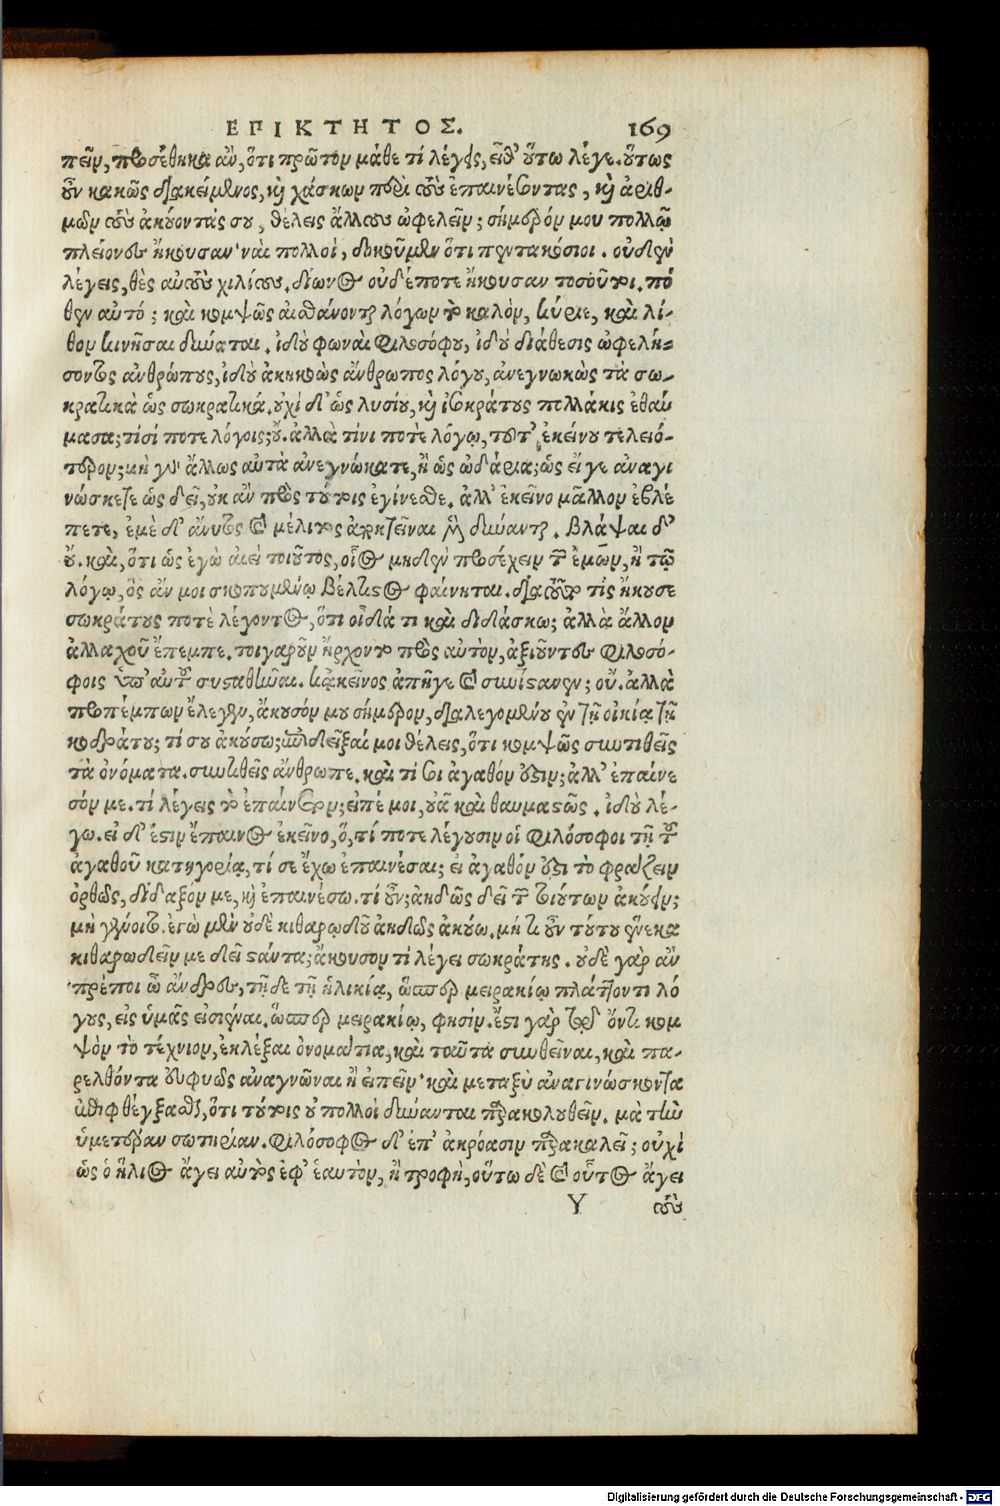 ΕΠΙΚΤΗΤΟΣ. 169
πεῖν, προσέθηκα ἂν, ὅτι πρῶτον μάθε τί λέγεις, εἶθ' οὕτω λέγε. οὕτως
οὖν κακῶς διακείμενος, καὶ χάσκων περὶ τοὺς ἐπαινέσοντας, καὶ ἀριθ-
μῶν τοὺς ἀκούοντάς σου, θέλεις ἄλλους ὠφελεῖν; σήμερόν μου πολλῷ
πλείονες ἤκουσαν· ναὶ πολλοὶ, δοκοῦμεν ὅτι πεντακόσιοι. οὐδὲν
λέγεις, θὲς αὐτοὺς χιλίους. δίωνος οὐδέποτε ἤκουσαν τοσοῦτοι. πό
θεν αὐτό; καὶ κομψῶς αἰσθάνονται λόγων τὸ καλὸν, κύριε, καὶ λί-
θον κινῆσαι δύναται. ἰδοὺ φωναὶ φιλοσόφου, ἰδοὺ διάθεσις ὠφελή-
σοντος ἀνθρώπους, ἰδοὺ ἀκηκοὼς ἄνθρωπος λόγου, ἀνεγνωκὼς τὰ σω-
κρατικὰ ὡς σωκρατικά. οὐχὶ δ' ὡς λυσίου, καὶ ἰσοκράτους πολλάκις ἐθαύ
μασα; τίσί ποτε λόγοις; οὔ. ἀλλὰ τίνι ποτὲ λόγῳ, τοῦτ' ἐκείνου τελειό-
τερον; μὴ γὰρ ἄλλως αὐτὰ ἀνεγνώκατε, ἢ ὡς ᾠδάρια; ὡς εἴ γε ἀναγι
νώσκετε ὡς δεῖ, οὐκ ἂν πρὸς τούτοις ἐγίνεσθε. ἀλλ' ἐκεῖνο μᾶλλον ἐβλέ
πετε, ἐμὲ δ' ἄνυτος καὶ μέλιτος ἀποκτεῖναι μὲν δύνανται. βλάψαι δ'
οὔ. καὶ, ὅτι ὡς ἐγὼ ἀεὶ τοιοῦτος, οἷος μηδὲν προσέχειν τῶν ἐμῶν, ἢ τῷ
λόγῳ, ὃς ἄν μοι σκοπουμένῳ βέλτιστος φαίνηται. διὰ τοῦτο τίς ἤκουσε
σωκράτους ποτὲ λέγοντος, ὅτι οἶδά τι καὶ διδάσκω; ἀλλὰ ἄλλον
ἀλλαχοῦ ἔπεμπε. τοιγαροῦν ἤρχοντο πρὸς αὐτὸν, ἀξιοῦντες φιλοσό-
φοις ὑπ' αὐτοῦ συσταθῆναι. κἀκεῖνος ἀπῆγε καὶ συνίστανεν; οὔ. ἀλλὰ
προπέμπων ἔλεγεν, ἄκουσόν μου σήμερον, διαλεγομένου ἐν τῇ οἰκίᾳ τῇ
κοδράτου; τί σου ἀκούσω; ἐπιδεῖξαί μοι θέλεις, ὅτι κομψῶς συντιθεῖς
τὰ ὀνόματα. συντιθεῖς ἄνθρωπε. καὶ τί σοι ἀγαθόν ἐστιν; ἀλλ' ἐπαίνε
σόν με. τί λέγεις τὸ ἐπαίνεσον; εἰπέ μοι, οὐᾶ καὶ θαυμαστῶς. ἰδοὺ λέ-
γω. εἰ δ' ἔστιν ἔπαινος ἐκεῖνο, ὅ, τί ποτε λέγουσιν οἱ φιλόσοφοι τῇ τοῦ
ἀγαθοῦ κατηγορίᾳ, τί σε ἔχω ἐπαινέσαι; εἰ ἀγαθόν ἐστι τὸ φράζειν
ὀρθῶς, δίδαξόν με, καὶ ἐπαινέσω. τί οὖν; ἀηδῶς δεῖ τῶν τοιούτων ἀκούειν;
μὴ γένοιτο. ἐγὼ μὲν οὐδὲ κιθαρῳδοῦ ἀηδῶς ἀκούω. μή τι οὖν τούτου ἕνεκα
κιθαρῳδεῖν με δεῖ στάντα; ἄκουσον τί λέγει σωκράτης. οὐδὲ γὰρ ἂν
πρέποι ὦ ἄνδρες, τῇδε τῇ ἡλικίᾳ, ὥσπερ μειρακίῳ πλάττοντι λό
γους, εἰς ὑμᾶς εἰσιέναι. ὥσπερ μειρακίῳ, φησίν. ἔστι γὰρ τῷ ὄντι κομ
ψὸν τὸ τέχνιον, ἐκλέξαι ὀνομάτια, καὶ ταῦτα συνθεῖναι, καὶ πα-
ρελθόντα εὐφυῶς ἀναγνῶναι ἢ εἰπεῖν· καὶ μεταξὺ ἀναγινώσκοντα
ἐπιφθέγξασθαι, ὅτι τούτοις οὐ πολλοὶ δύνανται παρακολουθεῖν. μὰ τὴν
ὑμετέραν σωτηρίαν. φιλόσοφος δ' ἐπ' ἀκρόασιν παρακαλεῖ; οὐχὶ
ὡς ὁ ἥλιος ἄγει αὐτὸς ἐφ' ἑαυτὸν, ἢ τροφὴ, οὕτω δὲ καὶ οὗτος ἄγει
Υ τοὺς
Digitalisierung gefördert durch die Deutsche Forschungsgemeinschaft - DFG